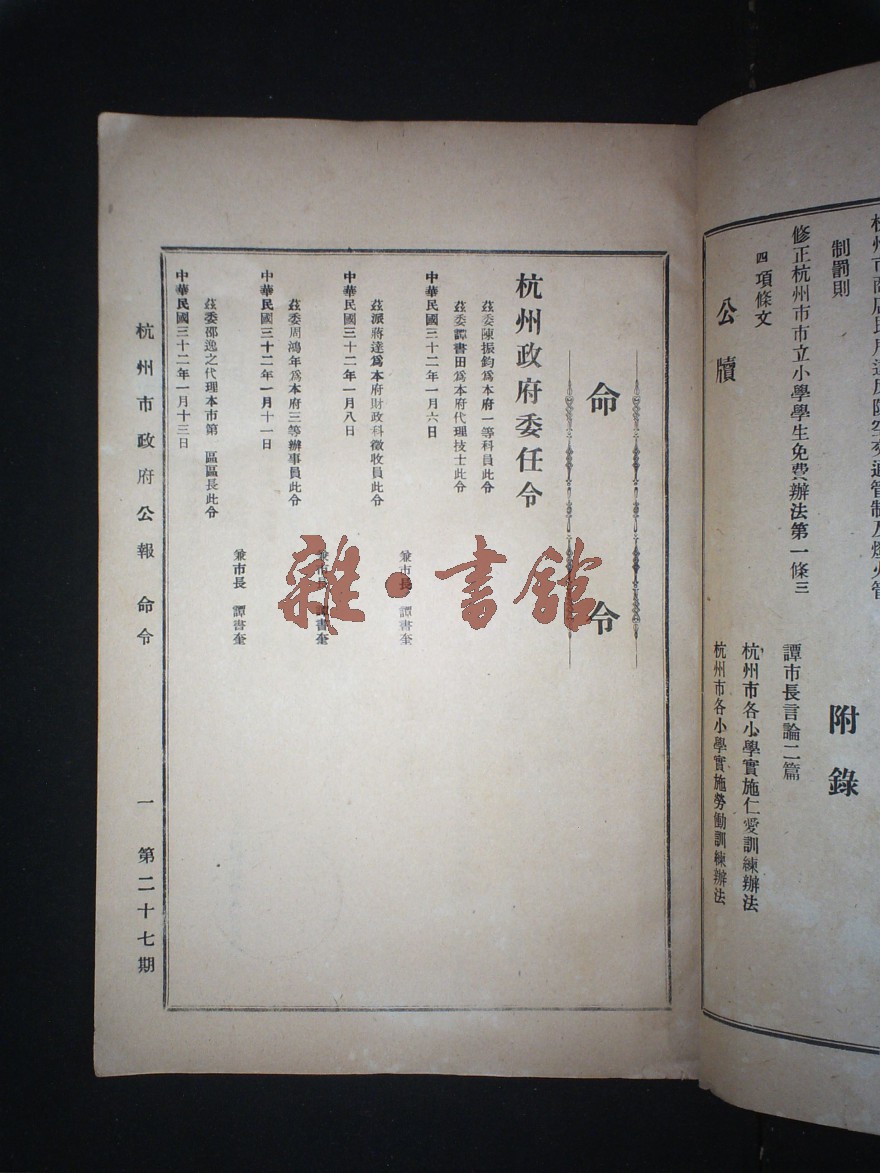 制罰則
修正杭州市市立小學學生免費辦法第一條三
四項條文
公牘
附錄
譚市長言論二篇
杭州市各小學實施仁愛訓練辦法
杭州市各小學實施勞働訓練辦法
命令
杭州政府委任令
茲委陳振鈞爲本府一等科員此令
茲委譚書田爲本府代理技士此令
中華民國三十二年一月六日
兼市長 譚書奎
茲派蔣達爲本府財政科徵收員此令
中華民國三十二年一月八日
兼市長 譚書奎
茲委周鴻年爲本府三等辦事員此令
中華民國三十二年一月十一日
兼市長 譚書奎
茲委邵逸之代理本市第 區區長此令
中華民國三十二年一月十三日
杭州市政府公報 命令 一 第二十七期
雜·書館